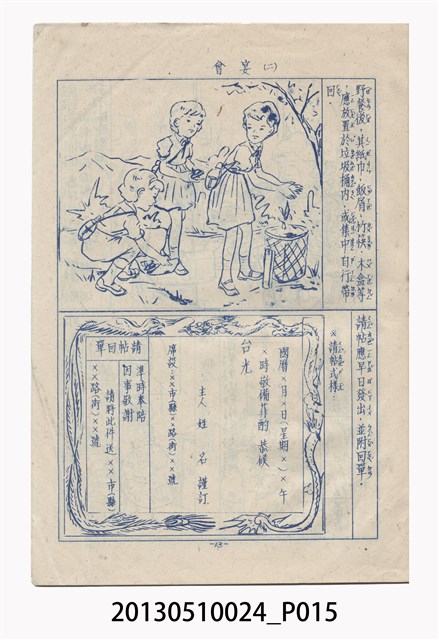 宴會(二)
野餐後，其紙巾、紙屑、竹筷、木盒等
，應放置於垃圾桶內，或集中自行帶
回。
請帖應早日發出，並附回單。
×請帖式樣：
國曆×月×日(星期×)×午
×時敬備菲酌 恭候
台光
主人 姓 名 謹訂
席設：××市(縣)×路(街)××號
請帖回單
準時奉陪
因事敬謝
請將此件送××市(縣)
××路(街)××號
-13-
20130510024_P015